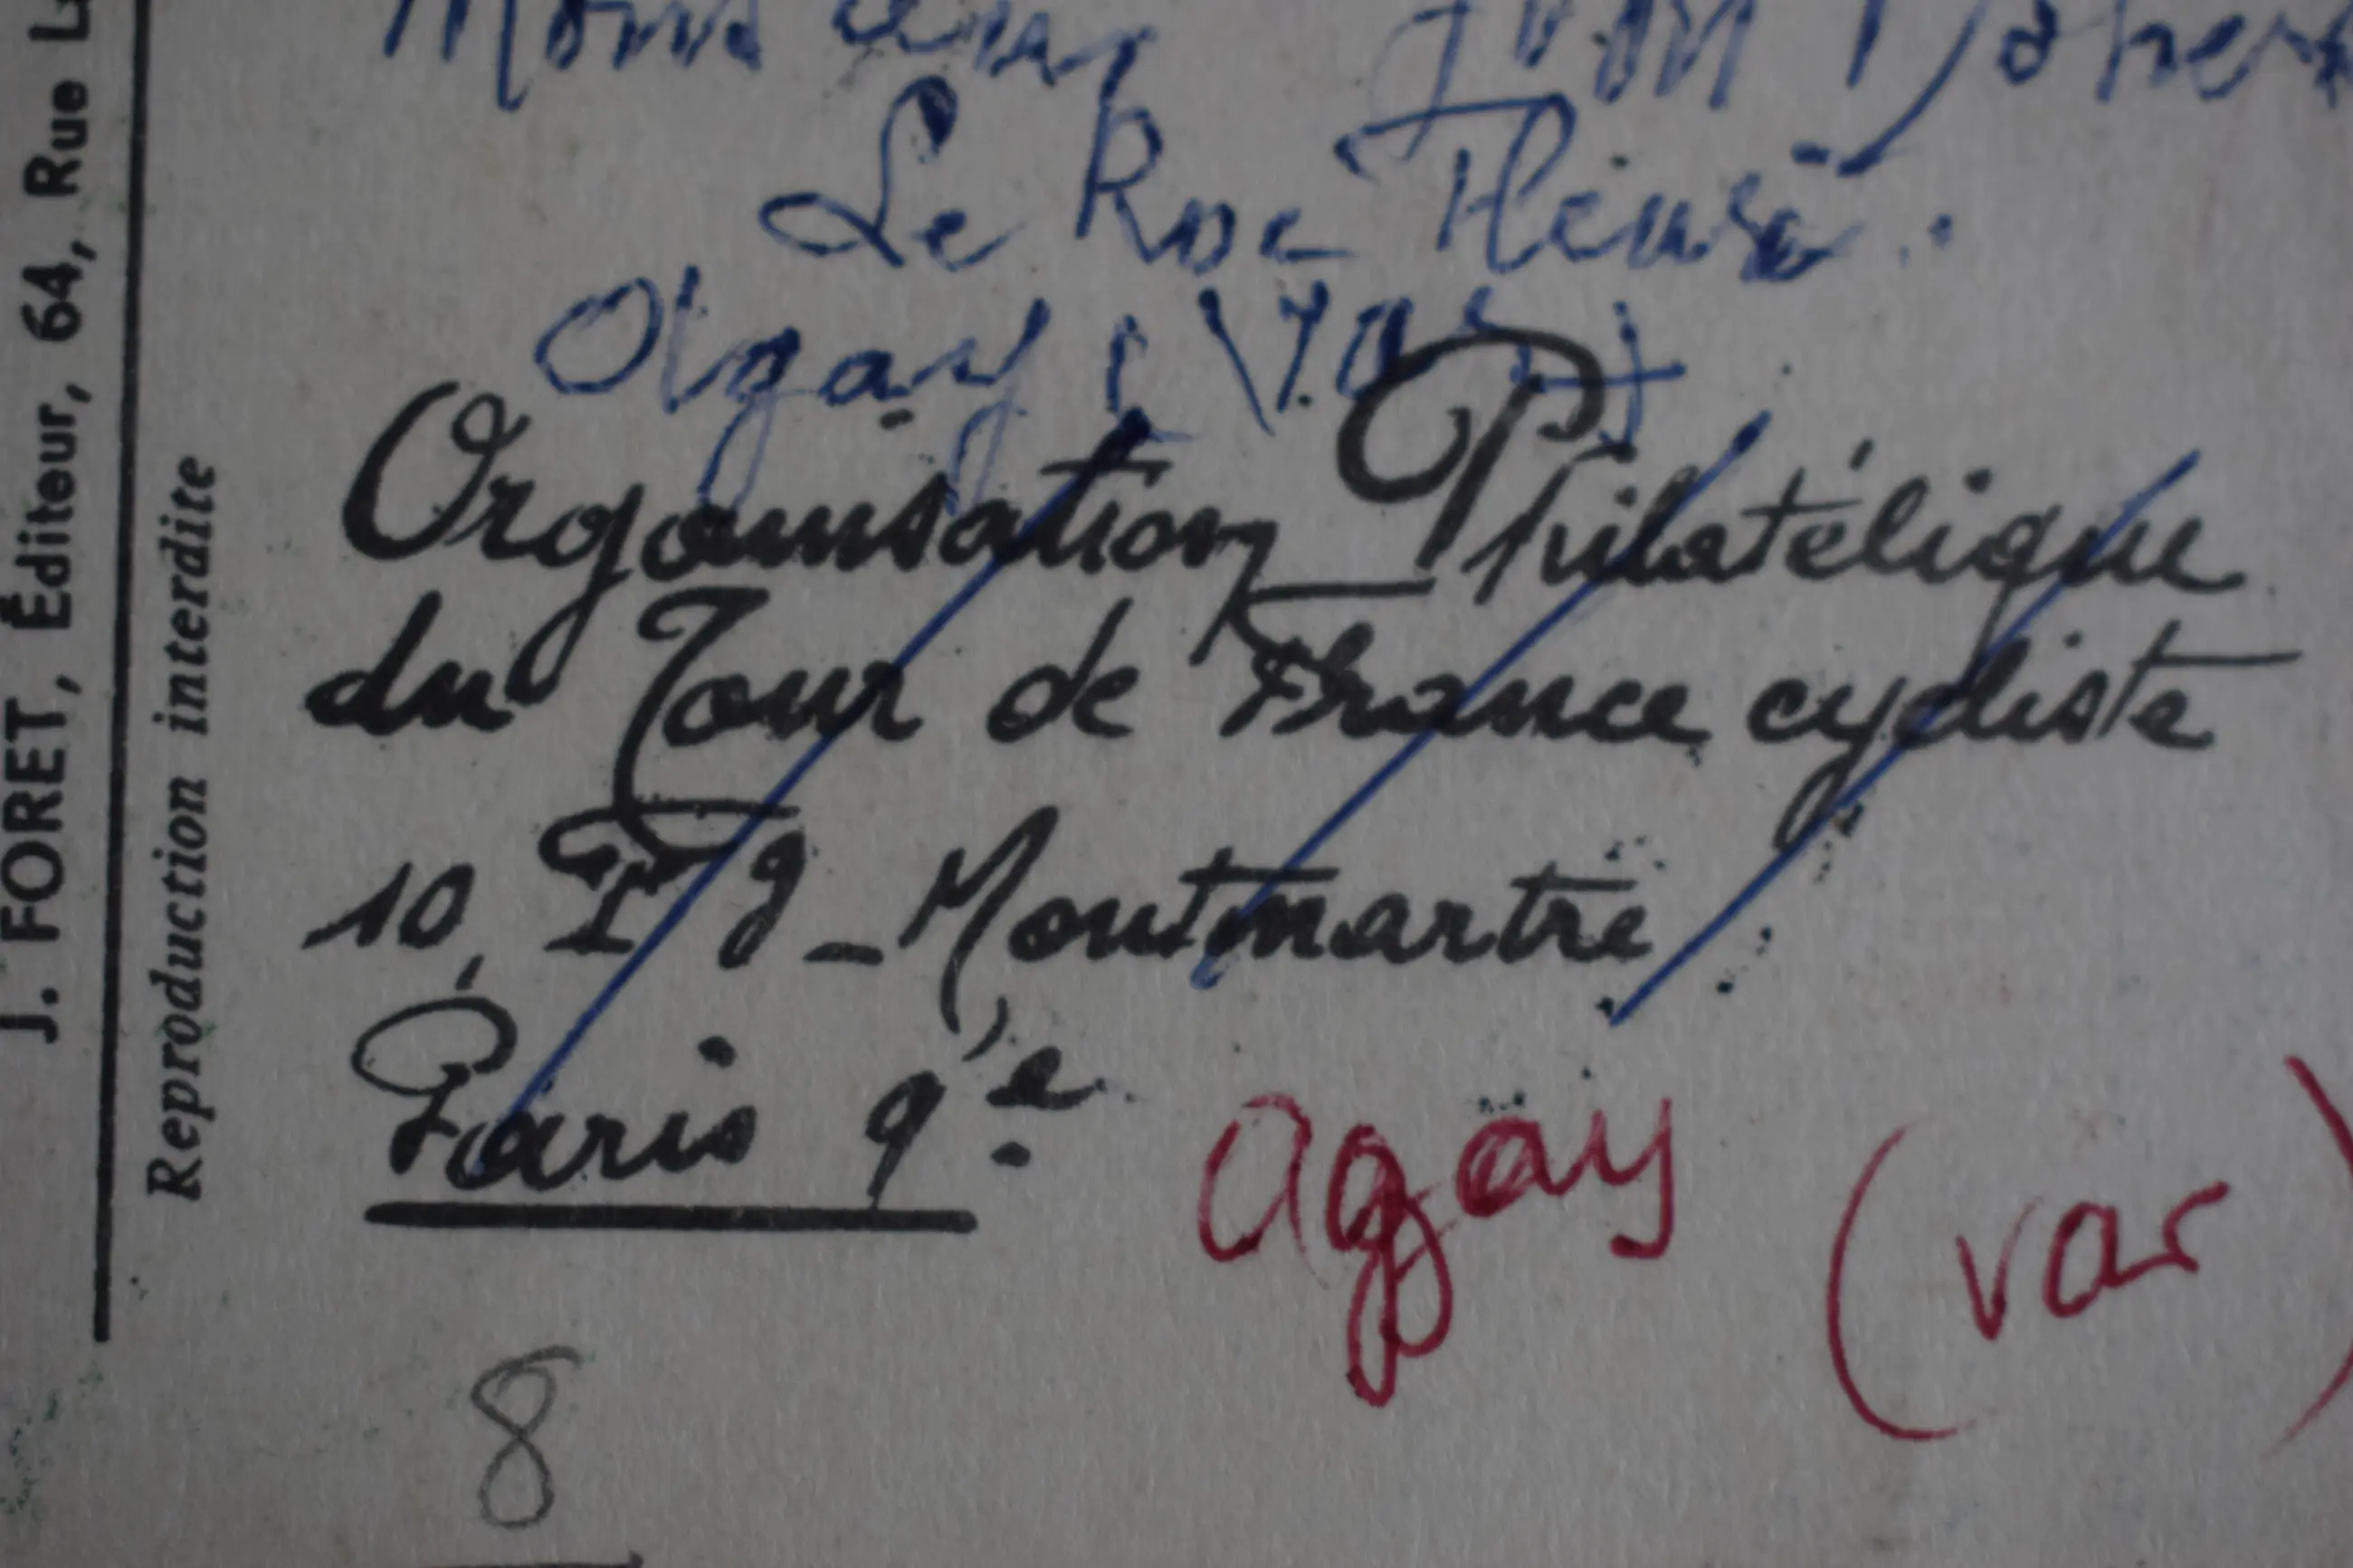 Monsieur
Le Roc Fleuri.
Agay (Var)
Organisation Philatélique
du Tour de France cycliste
10, Fg-Montmartre
Paris 9e.
Agay (Var)
8
J. FORET, Éditeur, 64, Rue
Reproduction interdite